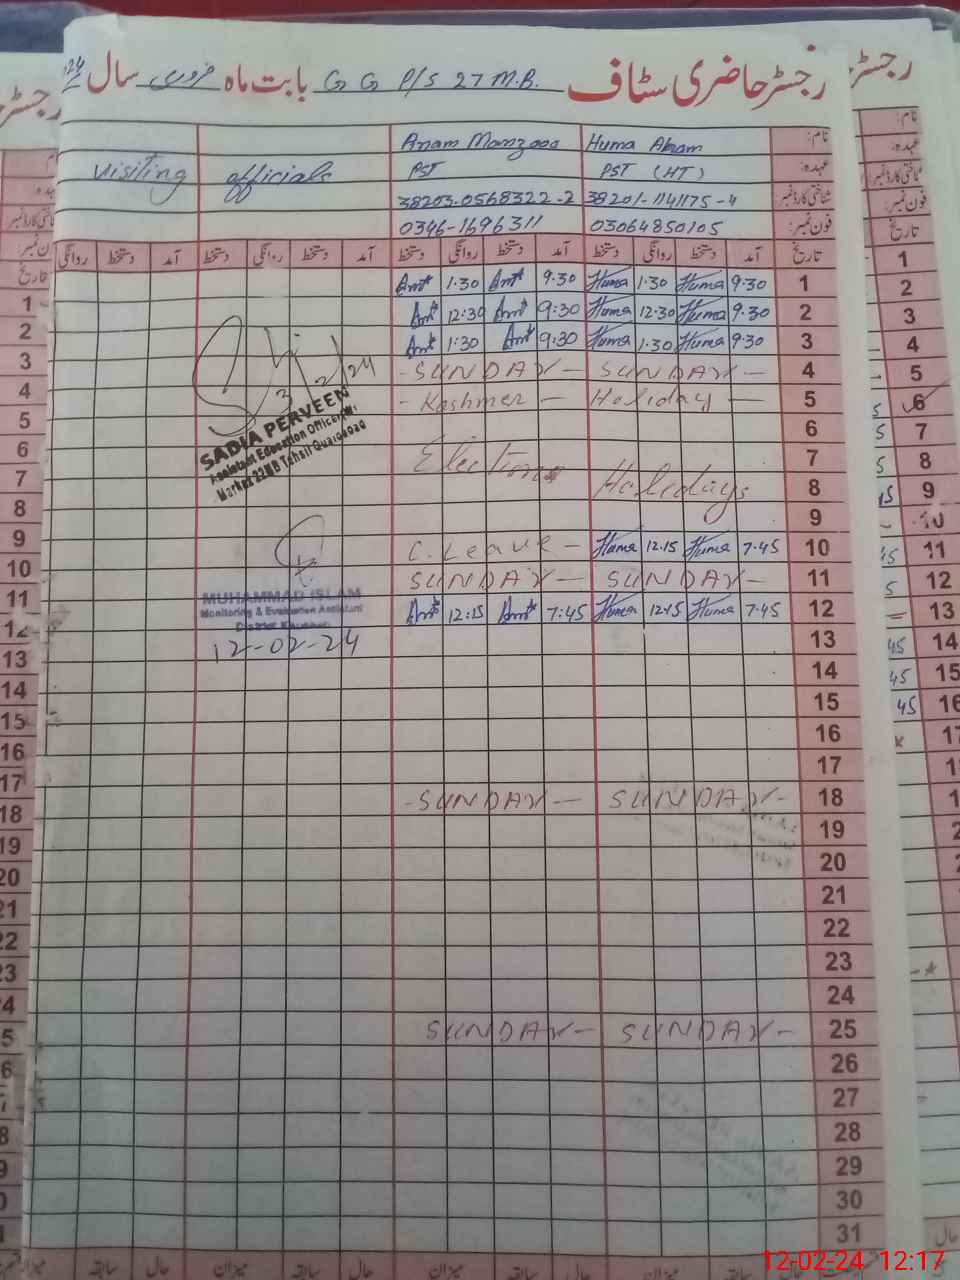 رجسٹر حاضری سٹاف G G P/S 27 M.B. بابت ماہ فروری سال
نام: Huma Akram Anam Manzoor
عہدہ: PST (HT) PST Visiting officials
شناختی کارڈ نمبر: 38201-1141175-4 38203-0568322-2
فون نمبر: 03064850105 0346-1696311
تاریخ آمد دستخط روانگی دستخط آمد دستخط روانگی دستخط آمد دستخط روانگی دستخط آمد دستخط روانگی
1 9.30 Huma 1.30 Huma 9.30 Amt 1.30 Amt
2 9.30 Huma 12.30 Huma 9:30 Amt 12:30 Amt
3 9.30 Huma 1.30 Huma 9:30 Amt 1:30 Amt
4 - SUNDAY — SUNDAY —
5 - Kashmer — Holiday —
6
7 Election Holidays
8
9
10 C. Leave - Huma 12.15 Huma 7.45
11 SUNDAY - SUNDAY -
12 Amt 12:15 Amt 7:45 Huma 12:15 Huma 7.45
13
14
15
16
17
18 - SUNDAY — SUNDAY -
19
20
21
22
23
24
25 SUNDAY - SUNDAY -
26
27
28
29
30
31
میزان حال سابقہ میزان حال سابقہ
3/2/24
SADIA PERVEEN
Assistant Education Officer(W)
Markaz 22MB Tehsil Quaidabad
MUHAMMAD ISLAM
Monitoring & Evaluation Assistant
District Khushab
12-02-24
12-02-24 12:17